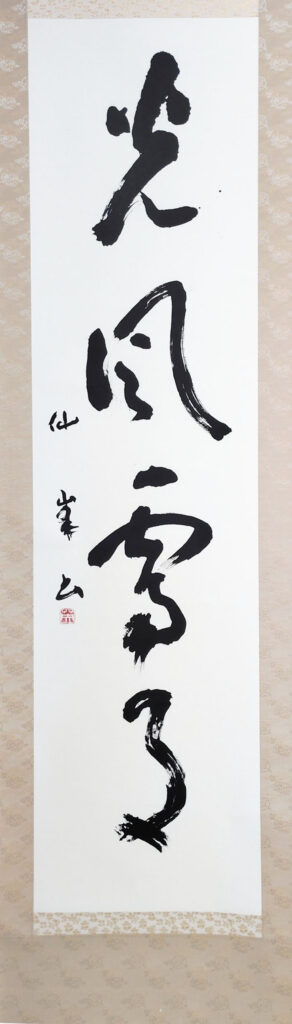 光風霽月
仙峯書